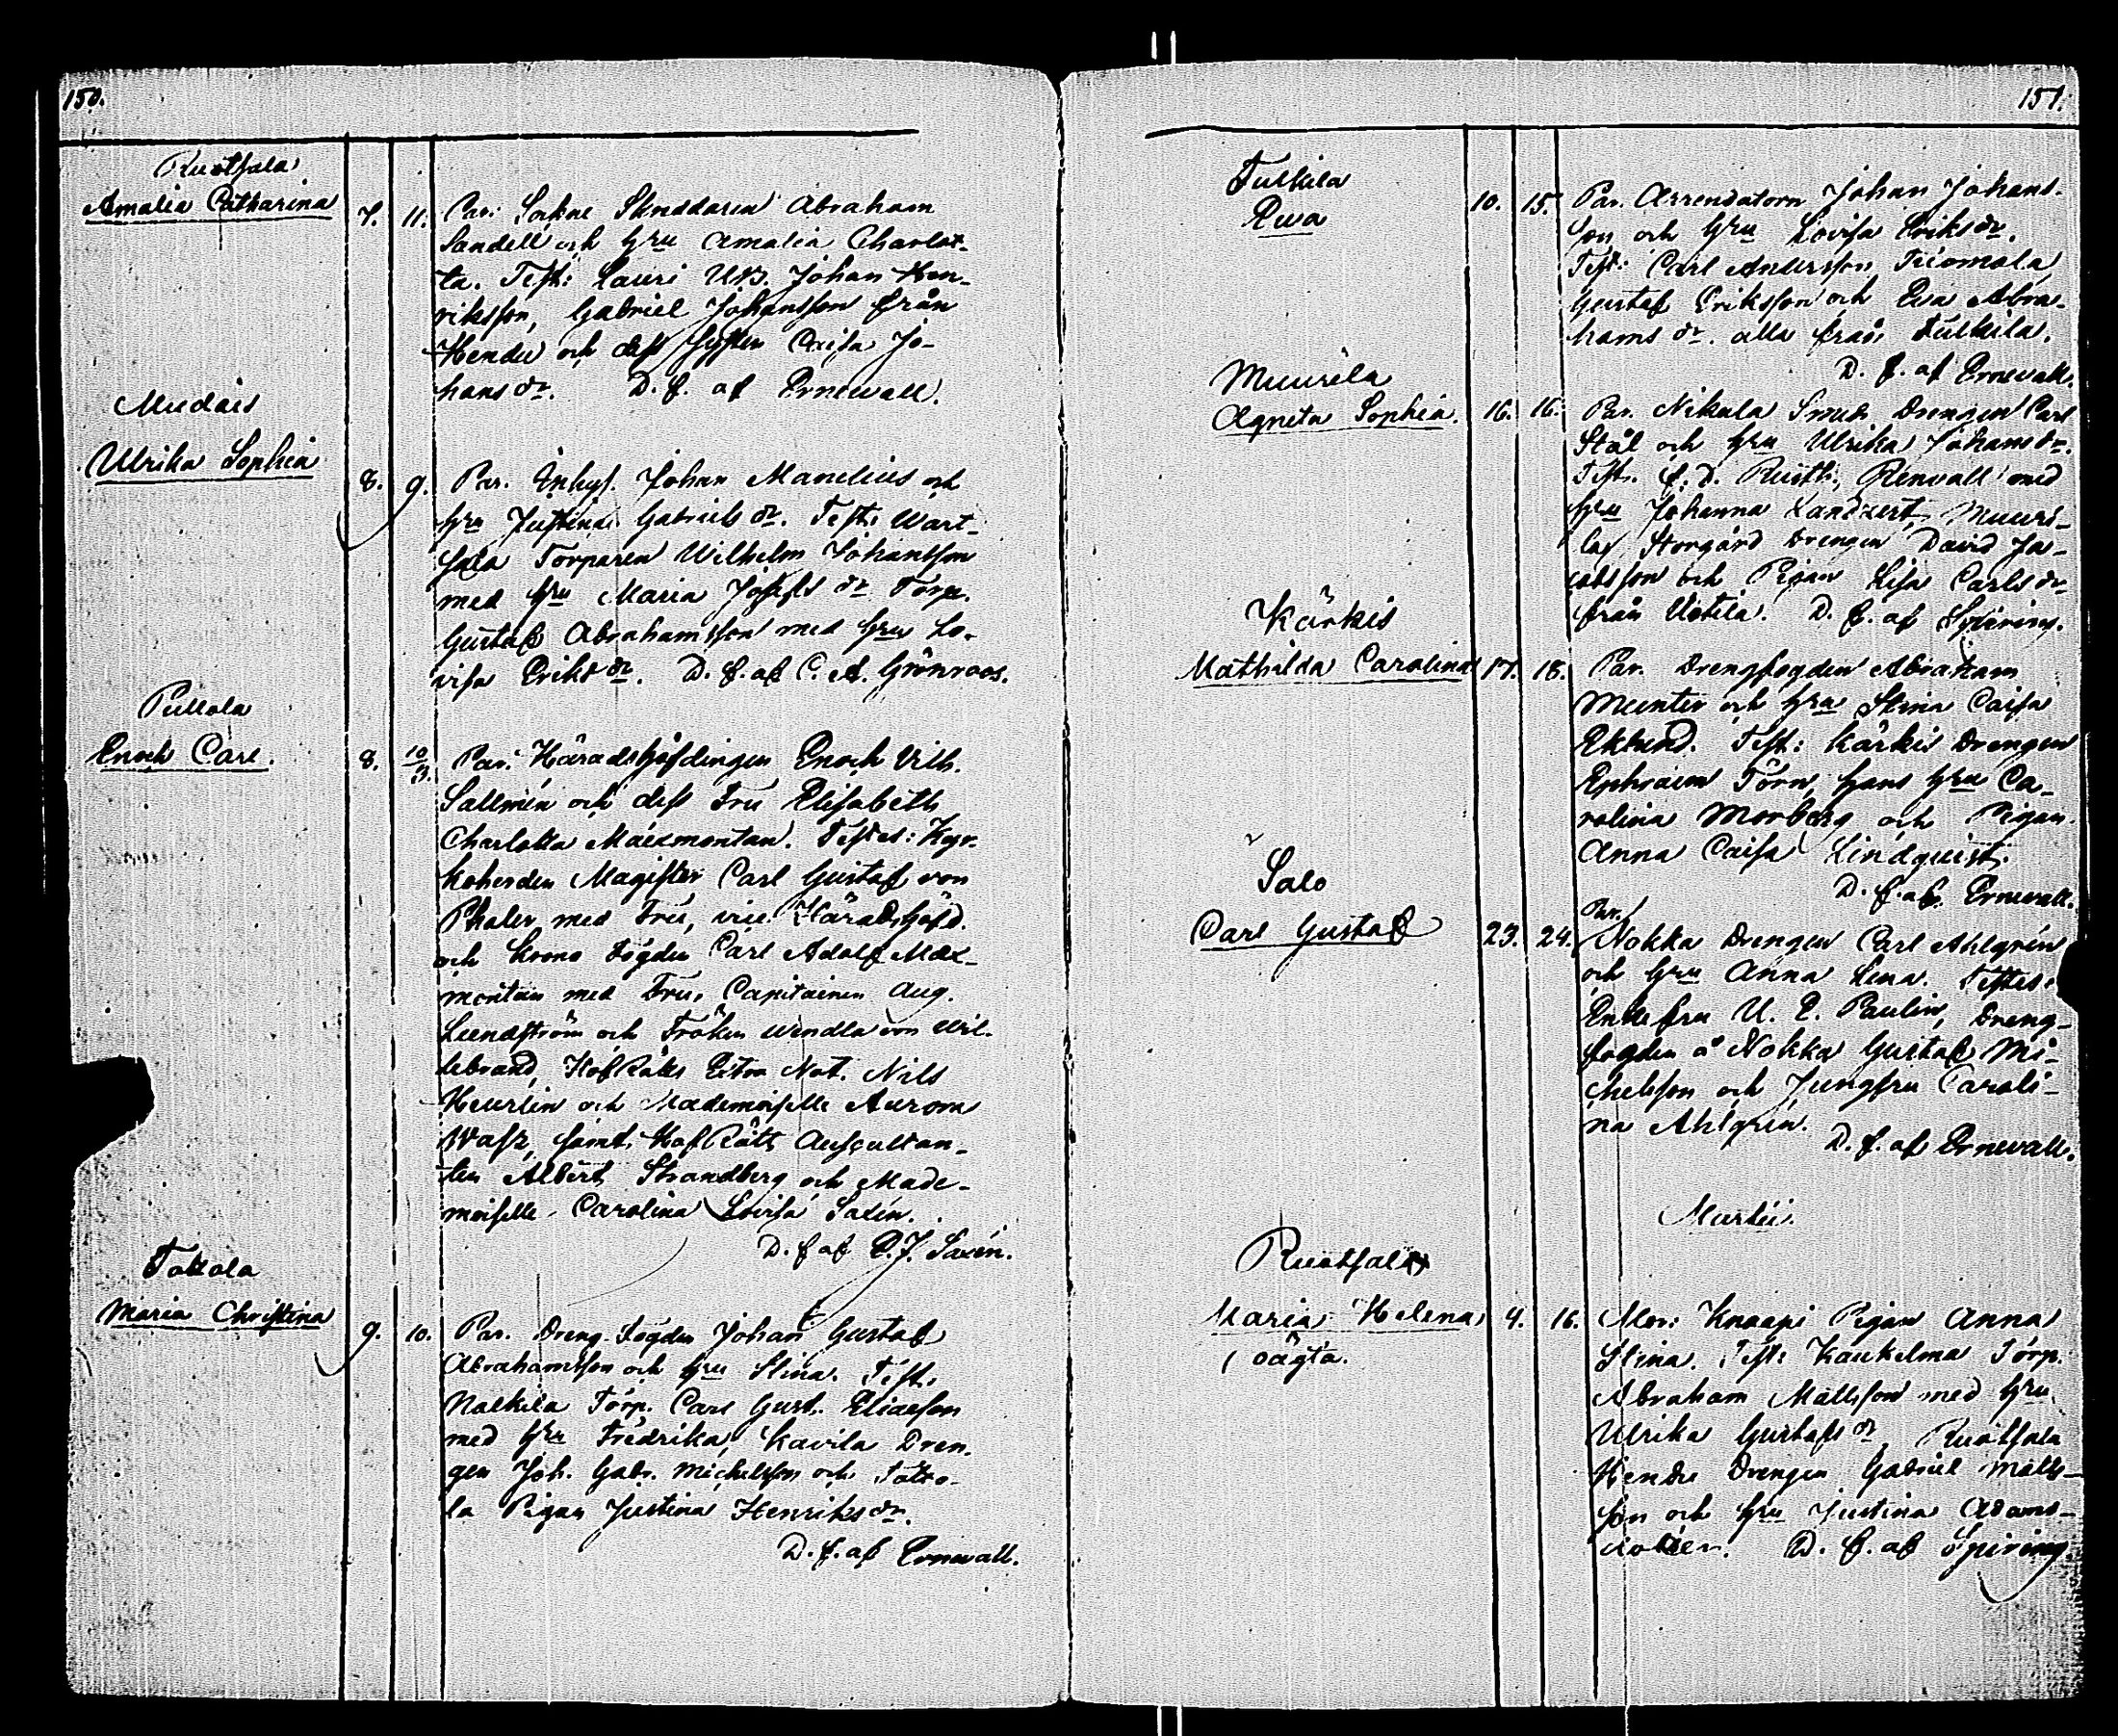 150.
Ruotsala
Amalia Catharina 7. 11. Par: Sokne Skreddaren Abraham
Sandell och hru Amalia Charlot-
ta. Test: Lauri Uts. Johan Hen-
riksson, Gabriel Johansson från
Hendu och dess syster Caisa Jo-
hans dr. D. f. af Ernewall.
Mudais
Ulrika Sophia 8. 9. Par. Inhys. Johan Manelius och
hru Justina Gabriels dr. Test: Wart-
sala Torparen Wilhelm Johansson
med hru Maria Josephs dr Torp.
Gustaf Abrahamsson med hru Lo-
visa Eriks dr. D. f. af C. A. Grönroos.
Pullola
Enoch Carl. 8. 10/3 Par: Häradshöfdingen Enoch Vilh.
Sallmén och dess Fru Elisabeth
Charlotta Maexmontan. Testes: Kyr-
koherden Magister Carl Gustaf von
Phaler med Fru, vice Häradshöfd.
och Krono Fogden Carl Adolf Maex-
montan med Fru, Capitainen Aug.
Lundström och Fröken Wendla von Wil-
lebrand, HofRätts Extra Not. Nils
Heurlin och Mademoiselle Aurora
Wasz, samt HofRätts Auscultan-
ten Albert Strandberg och Made-
moiselle Carolina Lovisa Saxén.
D. f. af E. J. Saxén.
Tattola
Maria Christina 9. 10. Par. Dreng Fogden Johan Gustaf
Abrahamsson och hru Stina. Test.
Nalkila Torp. Carl Gust. Eliaeson
med hru Fredrika, Kavila Dren-
gen Joh. Gabr. Michelsson och Tatto-
la Pigan Justina Henriks dr.
D. f. af Ernewall.
151.
Tulkila
Eva 10. 15. Par. Arrendatorn Johan Johans-
son och hru Lovisa Eriks dr.
Test: Carl Andersson Tiiomola,
Gustaf Eriksson och Eva Abra-
hams dr. alla från Tulkila.
D. f. af Ernewall.
Muurila
Agneta Sophia. 16. 16. Par. Nikula Smeds Drengen Carl
Stål och hru Ulrika Johans dr.
Test. f. D. Rusth. Renvall med
hru Johanna Landzert, Muuri-
la Storgård Drengen David Ja-
cobsson och Pigan Lisa Carls dr
från Uotila. D. f. af Spiring.
Kärkis
Mathilda Carolina 17. 18. Par. Drengfogden Abraham
Munter och hru Stina Caisa
Eklund. Test: Kärkis Drengen
Ephraim Törn, hans hru Ca-
rolina Morberg och Pigan
Anna Caisa Lindquist.
D. f. af Ernewall.
Salo
Carl Gustaf 23. 24. Par. Nokka Drengen Carl Ahlgrén
och hru Anna Lena. Testes:
Enkefru U. E. Paulin, Dreng-
fogden å Nokka Gustaf Mi-
chelsson och Jungfru Caroli-
na Ahlgrén.
D. f. af Ernewall.
Martii.
Ruotsala
Maria Helena 4. 16. Mor: Knaapi Pigan Anna
oägta. Stina. Test: Kaukelma Torp.
Abraham Mattsson med hru
Ulrika Gustafs dr Ruotsala
Hendu Drengen Gabriel Matts-
son och hru Justina Adams-
dotter. D. f. af Spiring.